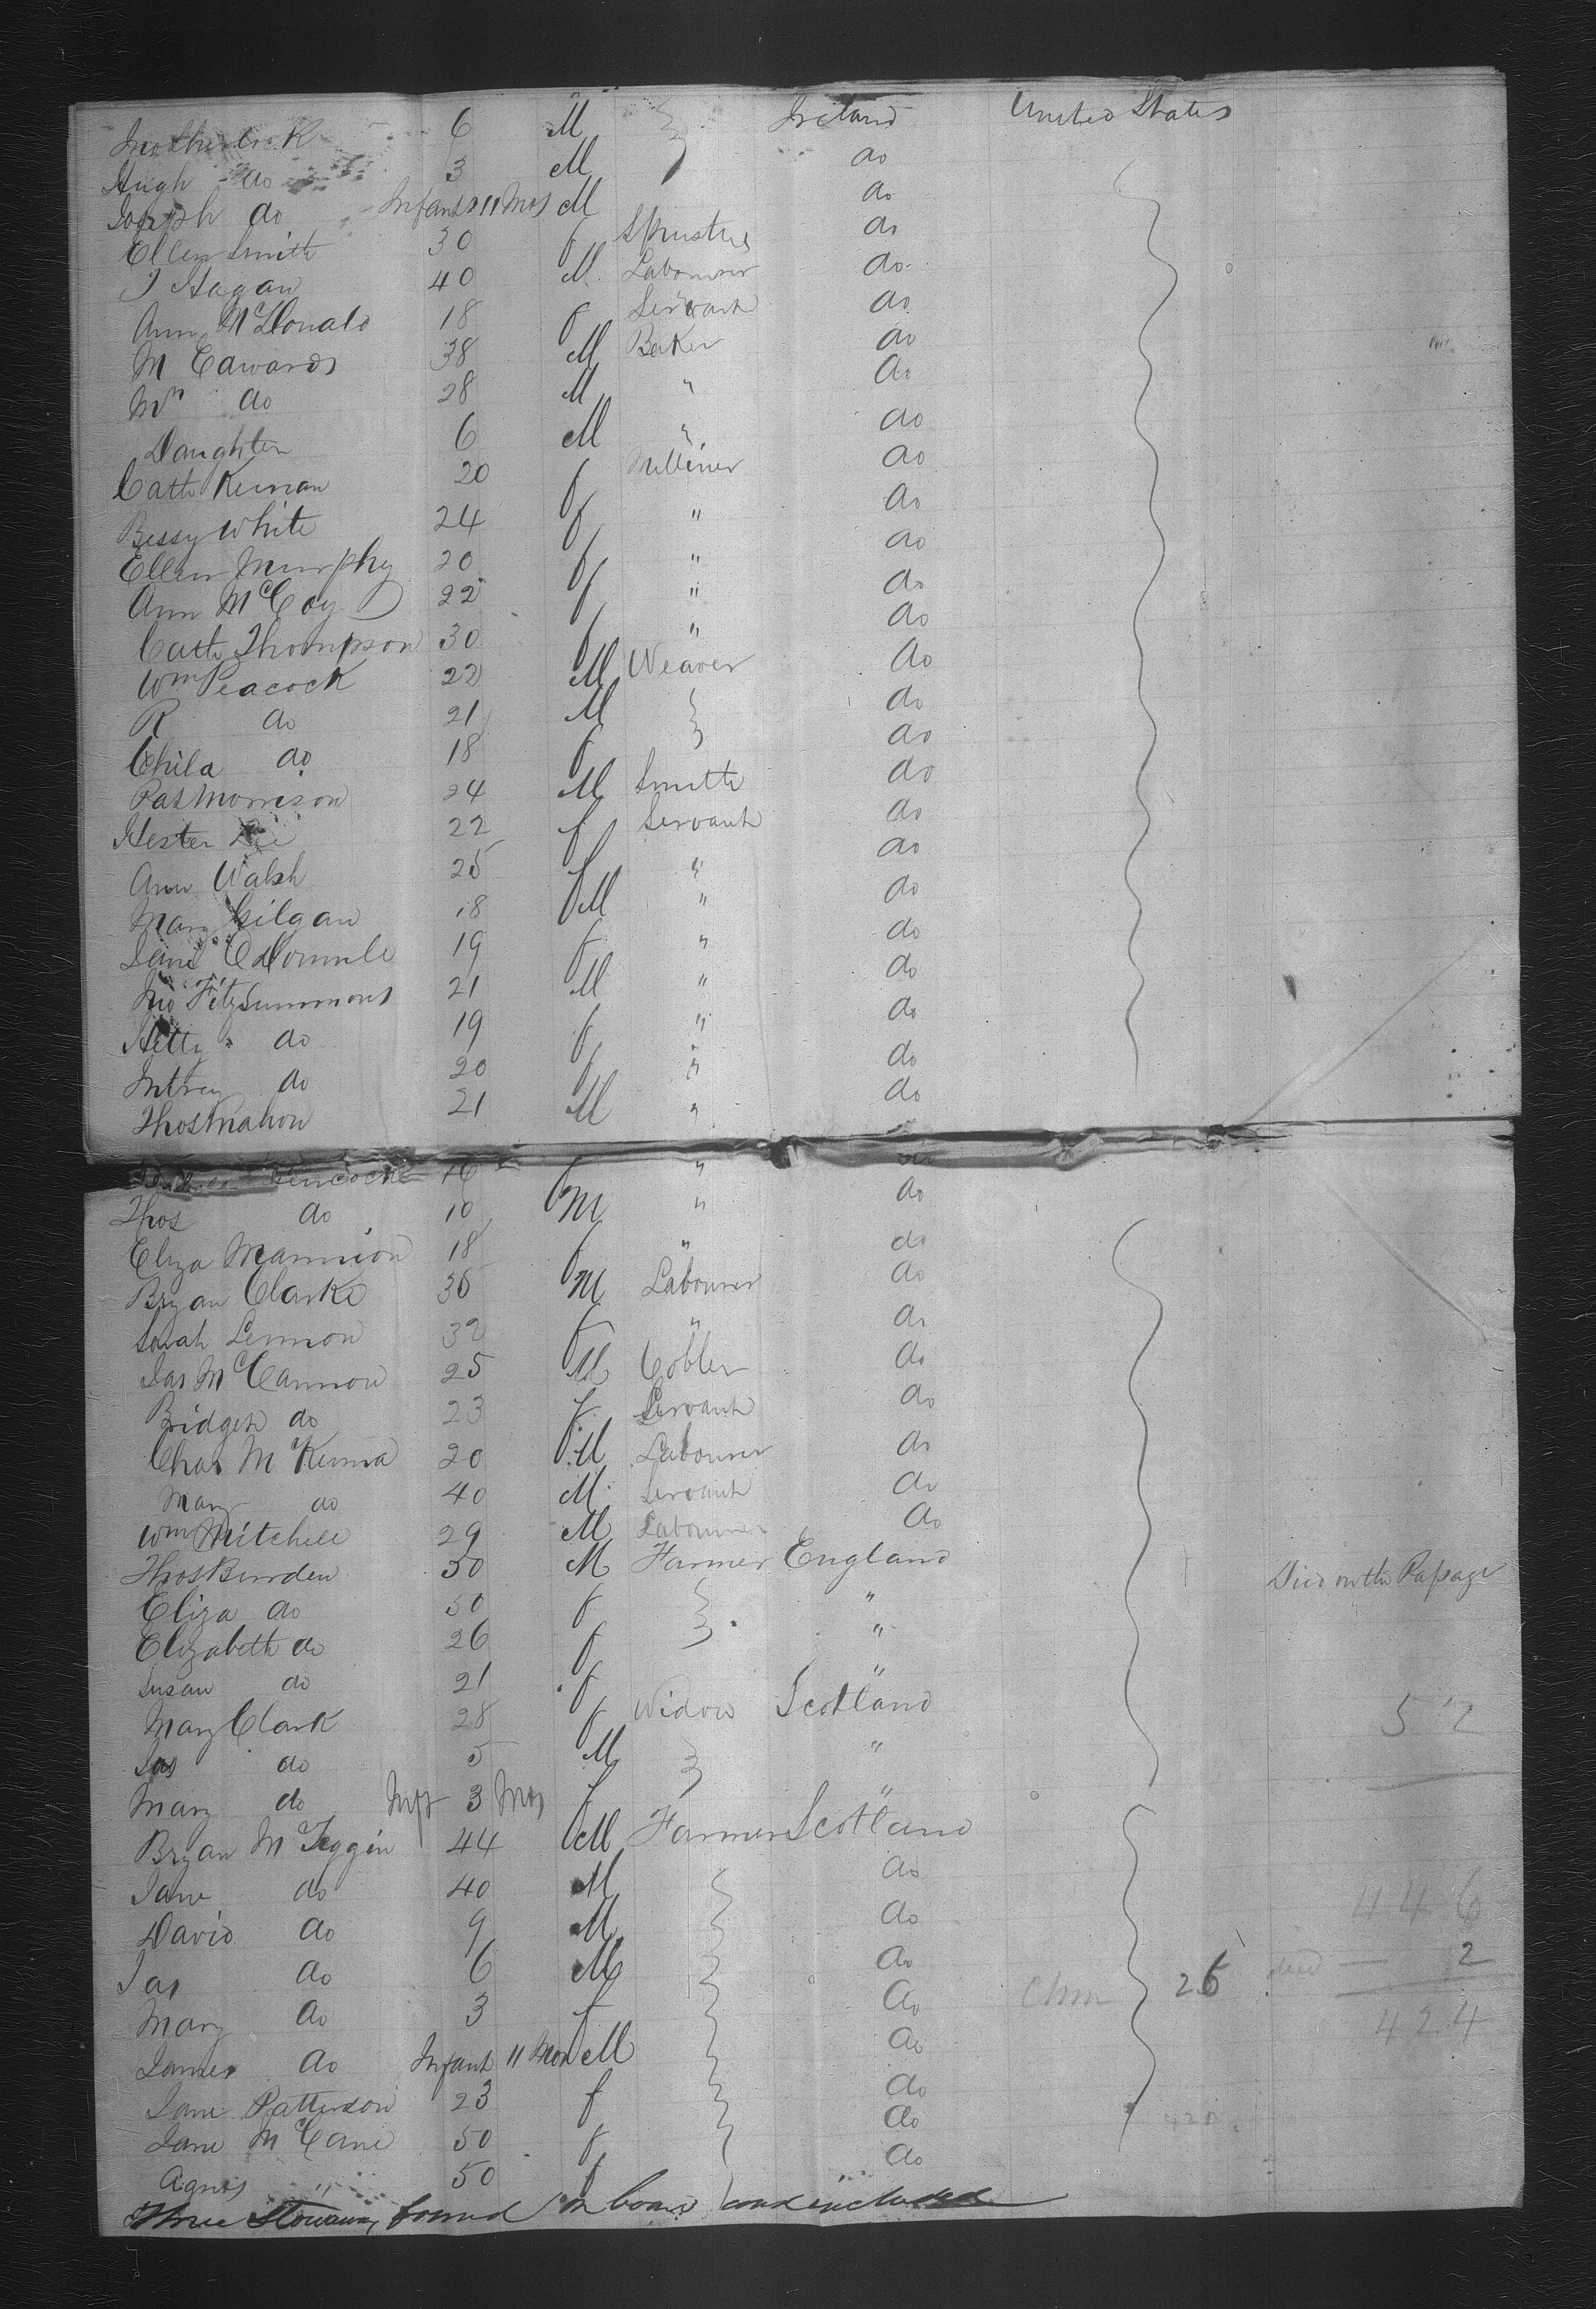 Jno Sherlock 6 M } Ireland United States
Hugh do 3 M do
Joseph do Infant 11 Mos M do
Ellen Smith 30 f Spinster do
J Hagan 40 M Labourer do
Ann McDonald 18 f Servant do
M Edwards 38 M Baker do
Mrs do 28 M " do
Daughter 6 M " do
Cath Kernan 20 f Milliner do
Bessy White 24 f " do
Ellen Murphy 20 f " do
Ann McCoy 22 f " do
Cath Thompson 30 f " do
Wm Peacock 22 M Weaver do
R do 21 M } do
Child do 18 f do
Pat Morrison 24 M Smith do
Hester 22 f Servant do
Ann Walsh 25 f " do
Mary Gilgan 18 M " do
Jane 19 f " do
Jno Fitzsummons 21 M " do
Hetty do 19 f " do
do 20 f " do
Thos Mahon 21 M " do
16 f " do
Thos do 10 M " do
Eliza Mannion 18 f " do
Bryan Clarke 35 M Labourer do
Sarah Lennon 32 f " do
Jas McCannon 25 M Cobler do
Bridget do 23 f Servant do
Chas McKenna 20 M Labourer do
Mary do 40 M Servant do
Wm Mitchell 29 M Labourer do
Thos Burden 50 M Farmer England Died on the Passage
Eliza do 50 f } "
Elizabeth do 26 f "
Susan do 21 f "
Mary Clark 28 f Widow Scotland 52
Jas do 5 M } "
Mary do Inft 3 Mos f "
Bryan McTeggin 44 M Farmer Scotland
Jane do 40 M } do
David do 9 M do 446
Jas do 6 M do 26 died — 2
Mary do 3 f do 424
James do Infant 11 Mos M do
Jane Patterson 23 f do
Jane McCane 50 f do
Agnes " 50 f do
Three Stowaway found on board and included